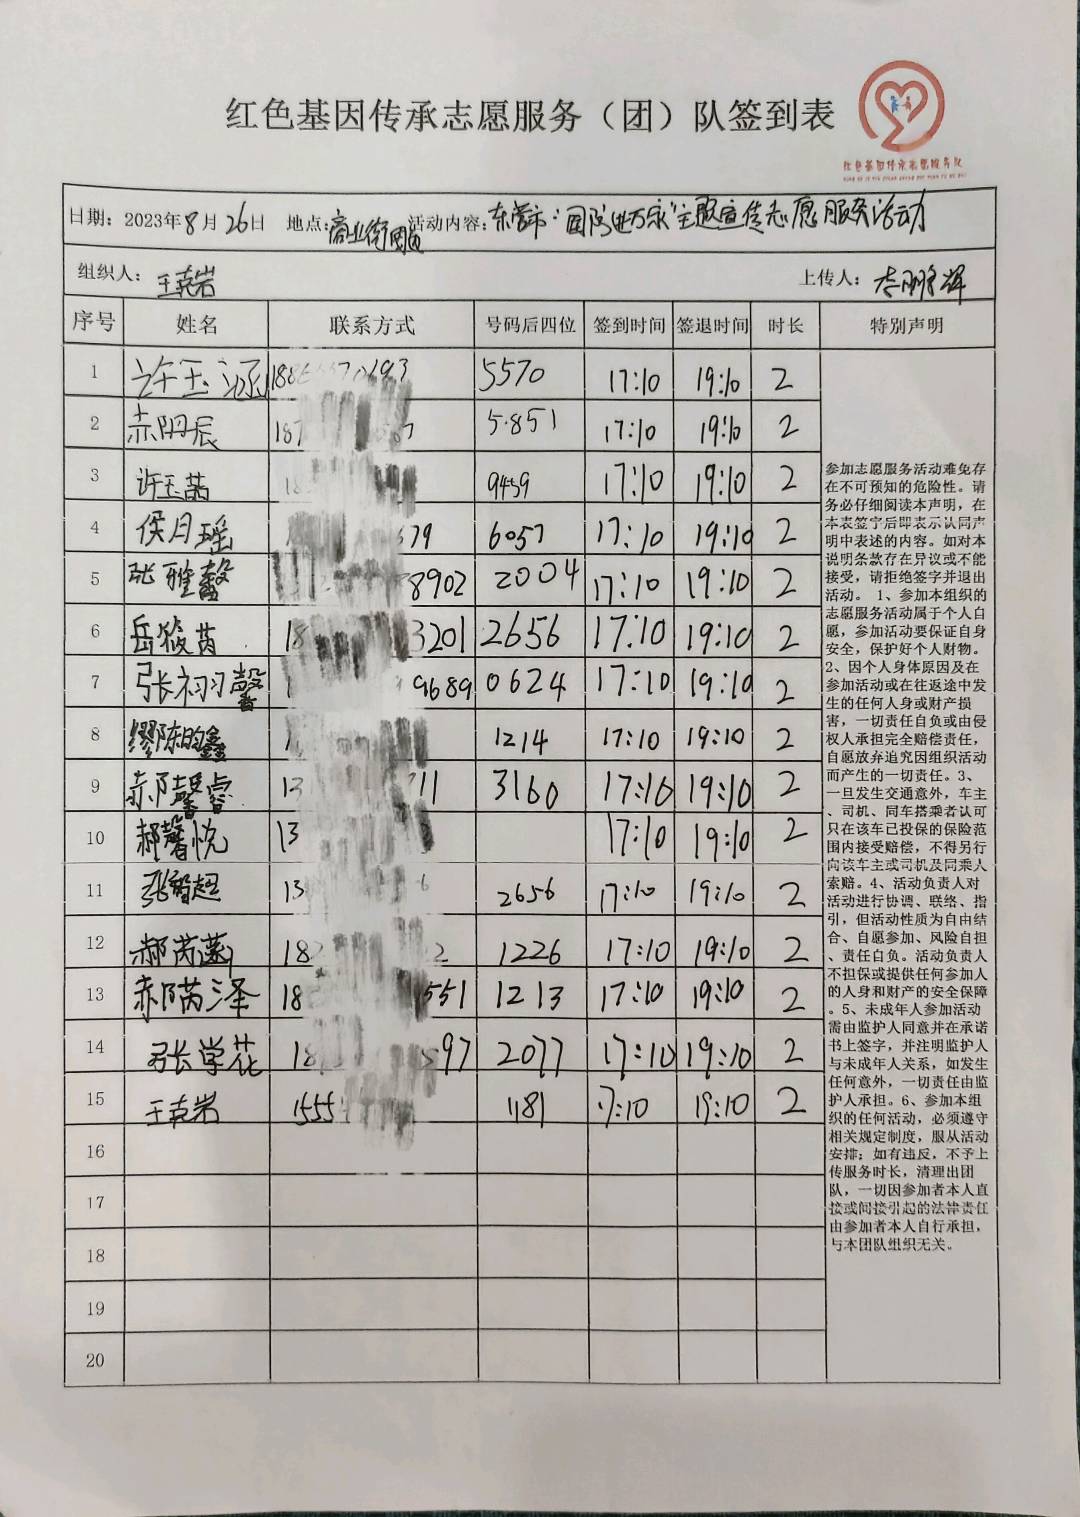 红色基因传承志愿服务（团）队签到表
红色基因传承志愿服务队
日期：2023年8月26日 地点：商业街 活动内容：东营市“国防进万家”主题宣传志愿服务活动
组织人：王克岩 上传人：李鹏辉
序号 姓名 联系方式 号码后四位 签到时间 签退时间 时长 特别声明
1 许玉涵 5570 17:10 19:10 2
2 郝玥辰 5851 17:10 19:10 2
3 许玉菡 9459 17:10 19:10 2
4 侯月瑶 6057 17:10 19:10 2
5 张雅馨 8902 2004 17:10 19:10 2
6 岳筱茵 18 3201 2656 17:10 19:10 2
7 张初馨 9689 0624 17:10 19:10 2
8 缪陈昀鑫 1214 17:10 19:10 2
9 郝馨睿 13 11 3160 17:10 19:10 2
10 郝馨悦 13 17:10 19:10 2
11 张智超 13 2656 17:10 19:10 2
12 郝芮 18 2 1226 17:10 19:10 2
13 郝芮泽 18 551 1213 17:10 19:10 2
14 张学花 18 597 2077 17:10 19:10 2
15 王克岩 1555 1181 17:10 19:10 2
16
17
18
19
20
参加志愿服务活动难免存
在不可预知的危险性。请
务必仔细阅读本声明，在
本表签字后即表示认同声
明中表述的内容。如对本
说明条款存在异议或不能
接受，请拒绝签字并退出
活动。 1、参加本组织的
志愿服务活动属于个人自
愿，参加活动要保证自身
安全，保护好个人财物。
2、因个人身体原因及在
参加活动或在往返途中发
生的任何人身或财产损
害，一切责任自负或由侵
权人承担完全赔偿责任，
自愿放弃追究因组织活动
而产生的一切责任。3、
一旦发生交通意外，车主
、司机、同车搭乘者认可
只在该车已投保的保险范
围内接受赔偿，不得另行
向该车主或司机及同乘人
索赔。4、活动负责人对
活动进行协调、联络、指
引，但活动性质为自由结
合、自愿参加、风险自担
、责任自负。活动负责人
不担保或提供任何参加人
的人身和财产的安全保障
。5、未成年人参加活动
需由监护人同意并在承诺
书上签字，并注明监护人
与未成年人关系，如发生
任何意外，一切责任由监
护人承担。6、参加本组
织的任何活动，必须遵守
相关规定制度，服从活动
安排；如有违反，不予上
传服务时长，清理出团
队，一切因参加者本人直
接或间接引起的法律责任
由参加者本人自行承担，
与本团队组织无关。